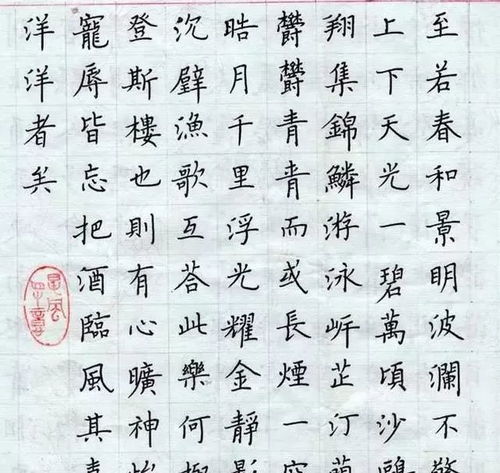 至若春和景明波瀾不驚
上下天光一碧萬頃沙鷗
翔集錦鱗游泳岍芷汀蘭
鬱鬱青青而或長煙一空
晧月千里浮光耀金靜影
沉璧漁歌互荅此樂何極
登斯樓也則有心曠神怡
寵辱皆忘把酒臨風其喜
洋洋者矣